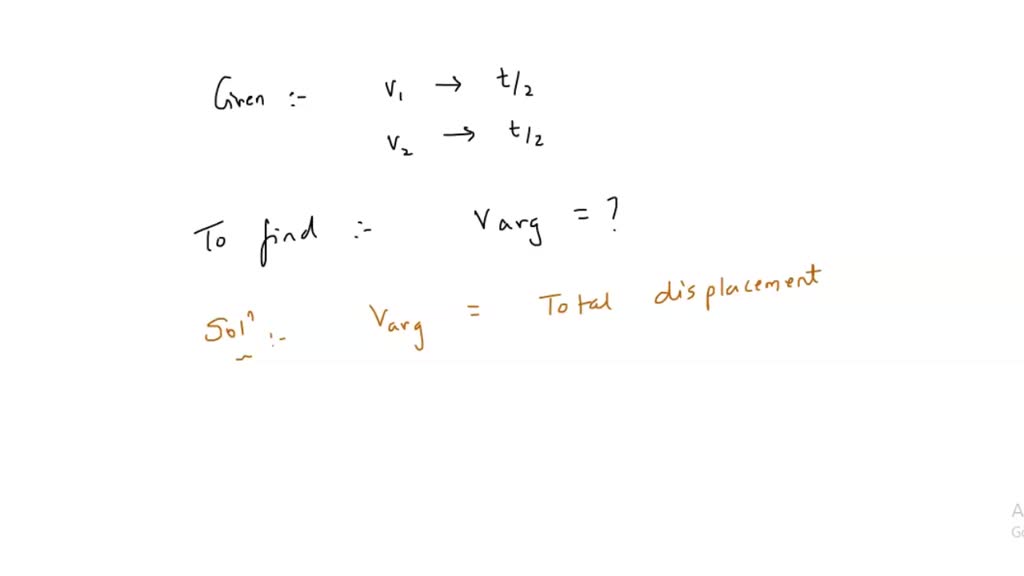 Given :- v₁ → t/2
v₂ → t/2
To find :- v avg = ?
Solⁿ :- Vavg = Total displacement